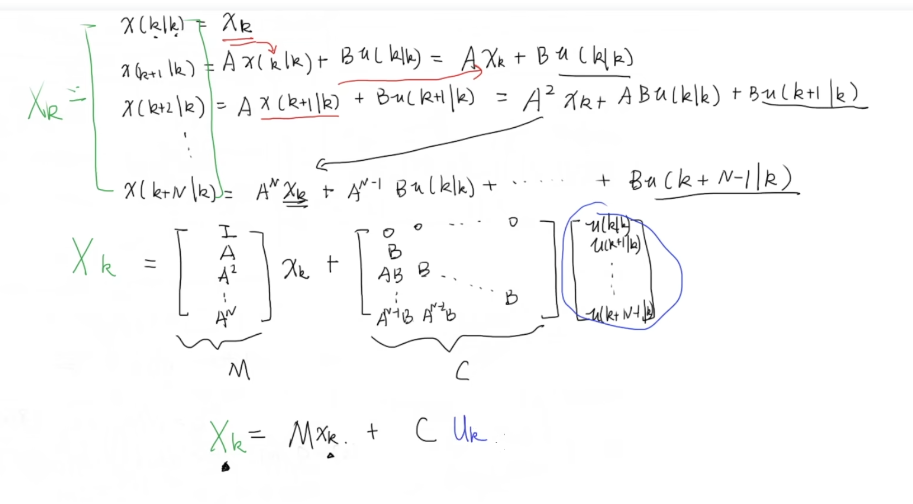 x(k|k) = xk
x(k+1|k) = A x(k|k) + Bu(k|k) = A xk + Bu(k|k)
Xk = x(k+2|k) = A x(k+1|k) + Bu(k+1|k) = A² xk + ABu(k|k) + Bu(k+1|k)
⋮
x(k+N|k) = A^N xk + A^N-1 Bu(k|k) + ...... + Bu(k+N-1|k)
Xk = [ I A A² ⋮ A^N ] xk + [ 0 0 ... 0 B AB B ... ⋮ B A^N-1B A^N-2B ] [ u(k|k) u(k+1|k) ⋮ u(k+N-1|k) ]
M C
Xk = Mxk + C Uk